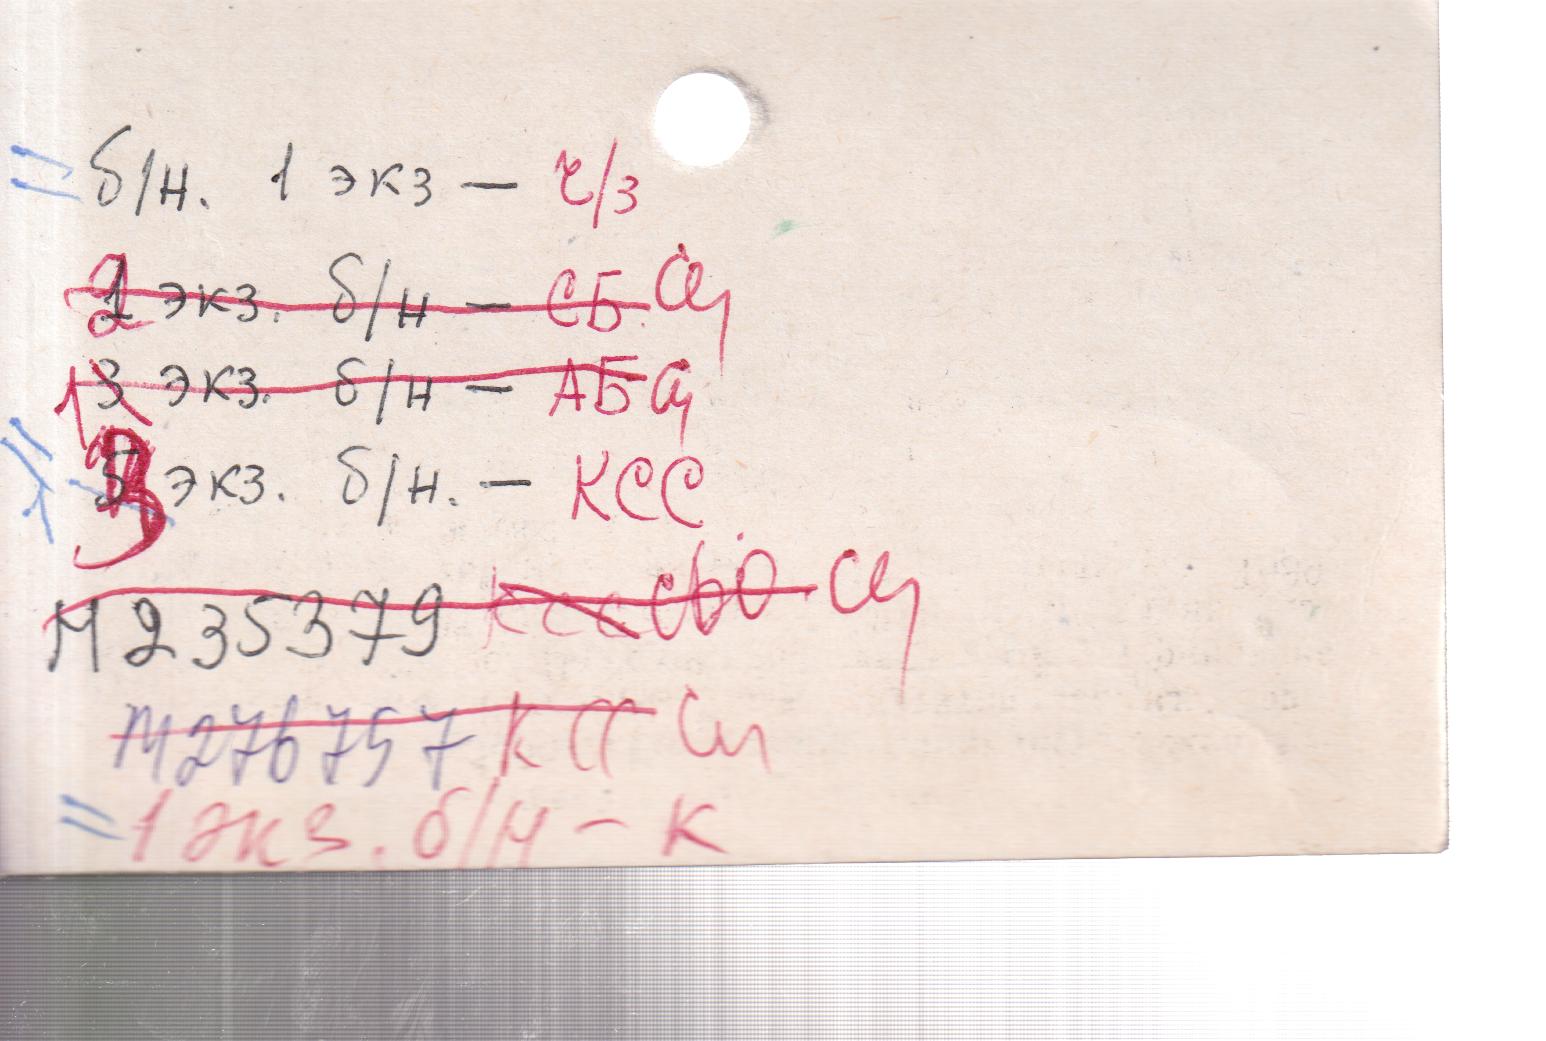 б/н. 1 экз — ч/з
экз. б/н — СБ.
экз. б/н — АБ
3 экз. б/н. — КСС
М235379 КСС СБО
М276757 КСС
1 экз. б/н — К